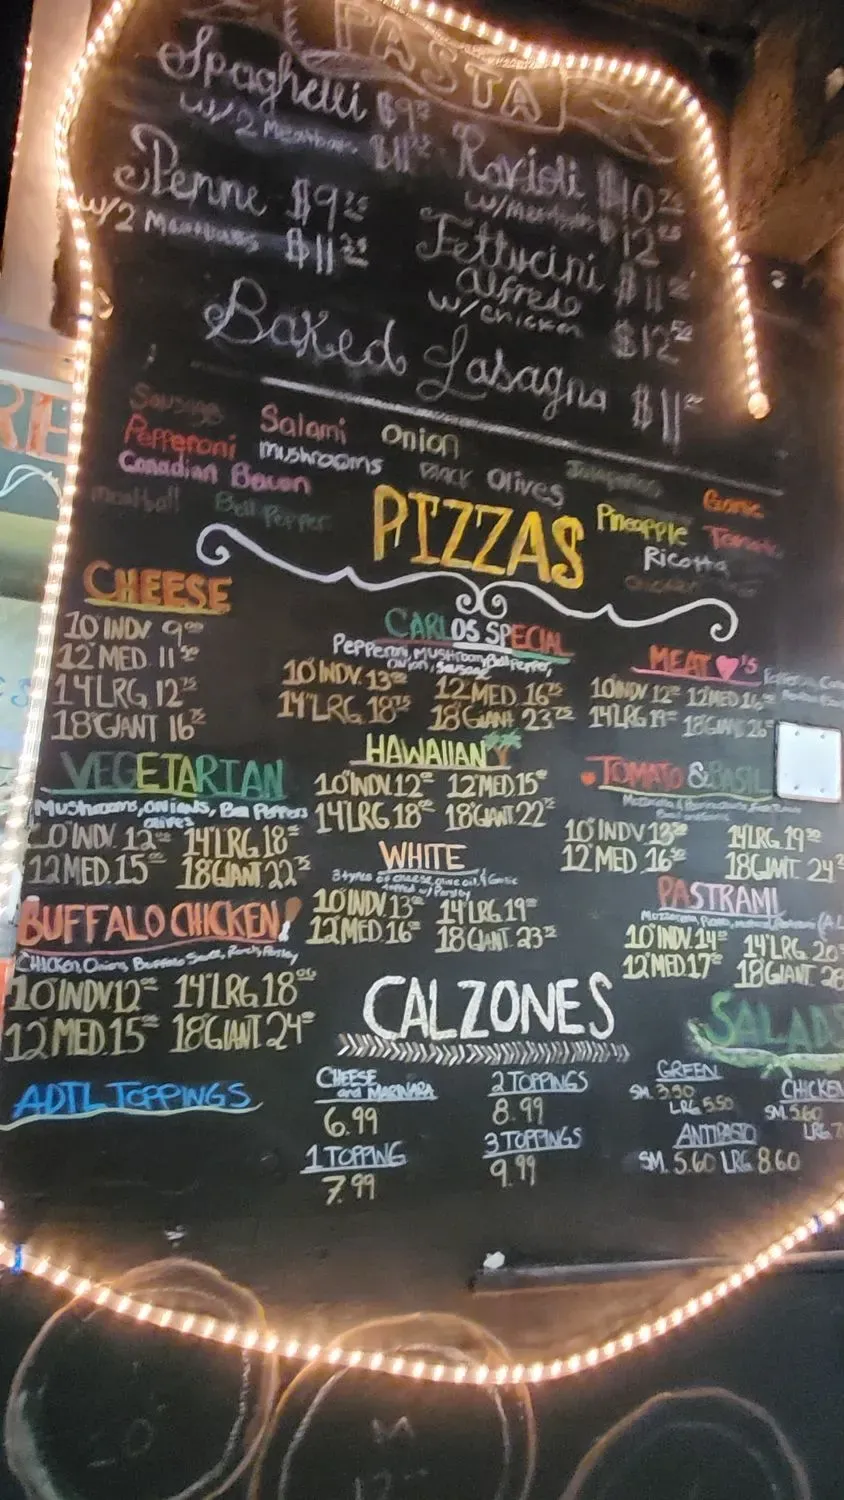 PASTA
Spaghetti $9
w/2 Meatballs $11
Ravioli $10.75
w/Meatballs $12
Penne $9.25
w/2 Meatballs $11.25
Fettucini
alfredo $11
w/chicken $12.50
Baked Lasagna $11
Sausage
Salami
Onion
Jalapeños
Garlic
Pepperoni
mushrooms
Black Olives
Pineapple
Tomato
Canadian Bacon
Ricotta
meatball
Bell Pepper
PIZZAS
CHEESE
10" INDV. 9.00
12" MED. 11.50
14" LRG. 12.75
18" GIANT 16.75
CARLOS SPECIAL
Pepperoni, Mushroom, Bell Pepper,
Onion, Sausage
10" INDV. 13 12" MED. 16
14" LRG. 18.75 18" GIANT 23.75
MEAT ♥'S
10" INDV. 12 12" MED. 16
14" LRG. 19 18" GIANT 26
VEGETARIAN
Mushrooms, onions, Bell Peppers
olives
10" INDV. 12 14" LRG. 18
12" MED. 15 18" GIANT 22.75
HAWAIIAN
10" INDV. 12 12" MED. 15
14" LRG. 18 18" GIANT 22
TOMATO & BASIL
10" INDV. 13 14" LRG. 19
12" MED. 16 18" GIANT. 24
WHITE
3 types of cheese, olive oil, & Garlic
topped w/ Parsley
10" INDV. 13 14" LRG. 19
12" MED. 16 18" GIANT. 23
PASTRAMI
10" INDV. 14 14" LRG. 20
12" MED. 17 18" GIANT 28
BUFFALO CHICKEN!
CHICKEN, Onions, Buffalo Sauce, Ranch, Parsley
10" INDV 12 14" LRG. 18
12" MED. 15 18" GIANT. 24
CALZONES
CHEESE
and MARINARA
6.99
2 TOPPINGS
8.99
1 TOPPING
7.99
3 TOPPINGS
9.99
SALADS
GREEN
SM. 3.50
LRG 5.50
CHICKEN
SM. 5.60
LRG. 7
ANTIPASTO
SM. 5.60 LRG 8.60
ADTL TOPPINGS